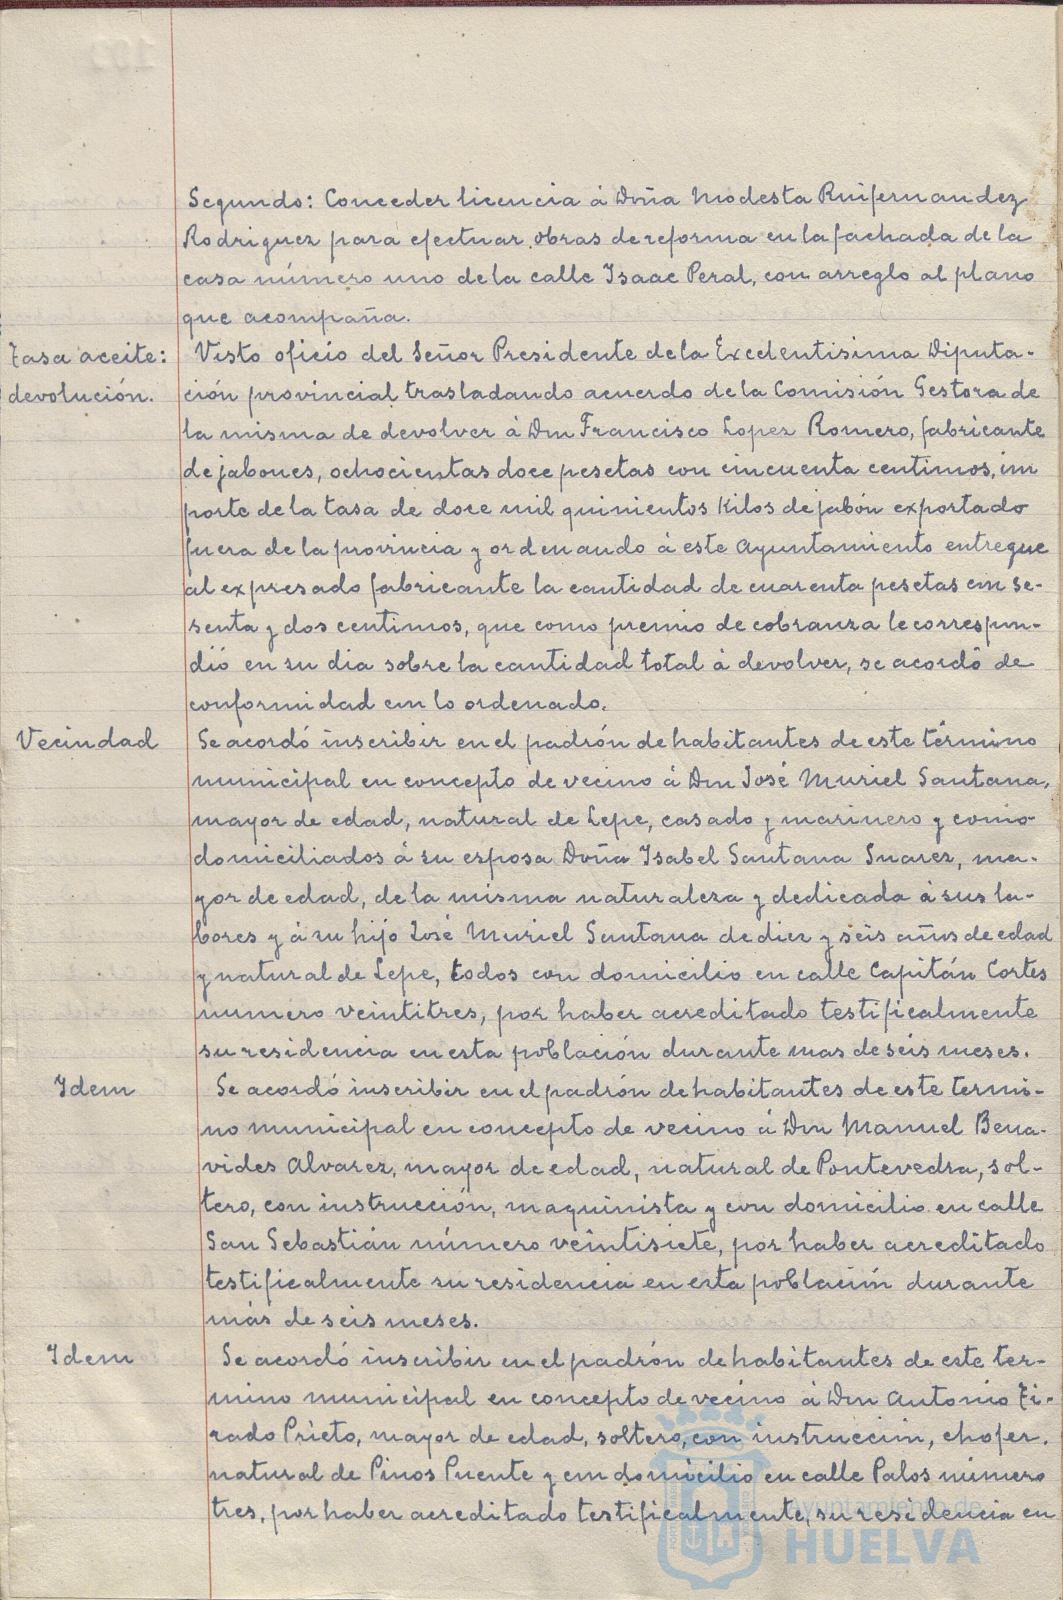 Segundo: Conceder licencia á Doña Modesta Ruifernandez
Rodriguez para efectuar obras de reforma en la fachada de la
casa número uno de la calle Isaac Peral, con arreglo al plano
que acompaña.
Tasa aceite:
devolución.
Visto oficio del Señor Presidente de la Excelentisima Diputa-
ción provincial trasladando acuerdo de la Comisión Gestora de
la misma de devolver á Don Francisco Lopez Romero, fabricante
de jabones, ochocientas doce pesetas con cincuenta centimos, im
porte de la tasa de doce mil quinientos Kilos de jabón exportado
fuera de la provincia y ordenando á este Ayuntamiento entregue
al expresado fabricante la cantidad de cuarenta pesetas con se-
senta y dos centimos, que como premio de cobranza le correspon-
dió en su dia sobre la cantidad total á devolver, se acordó de
conformidad con lo ordenado.
Vecindad
Se acordó inscribir en el padrón de habitantes de este término
municipal en concepto de vecino á Don José Muriel Santana,
mayor de edad, natural de Lepe, casado y marinero y como
domiciliados á su esposa Doña Isabel Santana Suarez, ma-
yor de edad, de la misma naturaleza y dedicada á sus la-
bores y á su hijo José Muriel Santana de diez y seis años de edad
y natural de Lepe, todos con domicilio en calle Capitán Cortes
numero veintitres, por haber acreditado testificalmente
su residencia en esta población durante mas de seis meses.
Idem
Se acordó inscribir en el padrón de habitantes de este termi-
no municipal en concepto de vecino á Don Manuel Bena-
vides Alvarez, mayor de edad, natural de Pontevedra, sol-
tero, con instrucción, maquinista y con domicilio en calle
San Sebastián número veintisiete, por haber acreditado
testificalmente su residencia en esta población durante
más de seis meses.
Idem
Se acordó inscribir en el padrón de habitantes de este ter-
mino municipal en concepto de vecino á Don Antonio Ti-
rado Prieto, mayor de edad, soltero, con instrucción, chofer.
natural de Pinos Puente y con domicilio en calle Palos número
tres, por haber acreditado testificalmente, su residencia en
ayuntamiento de
HUELVA